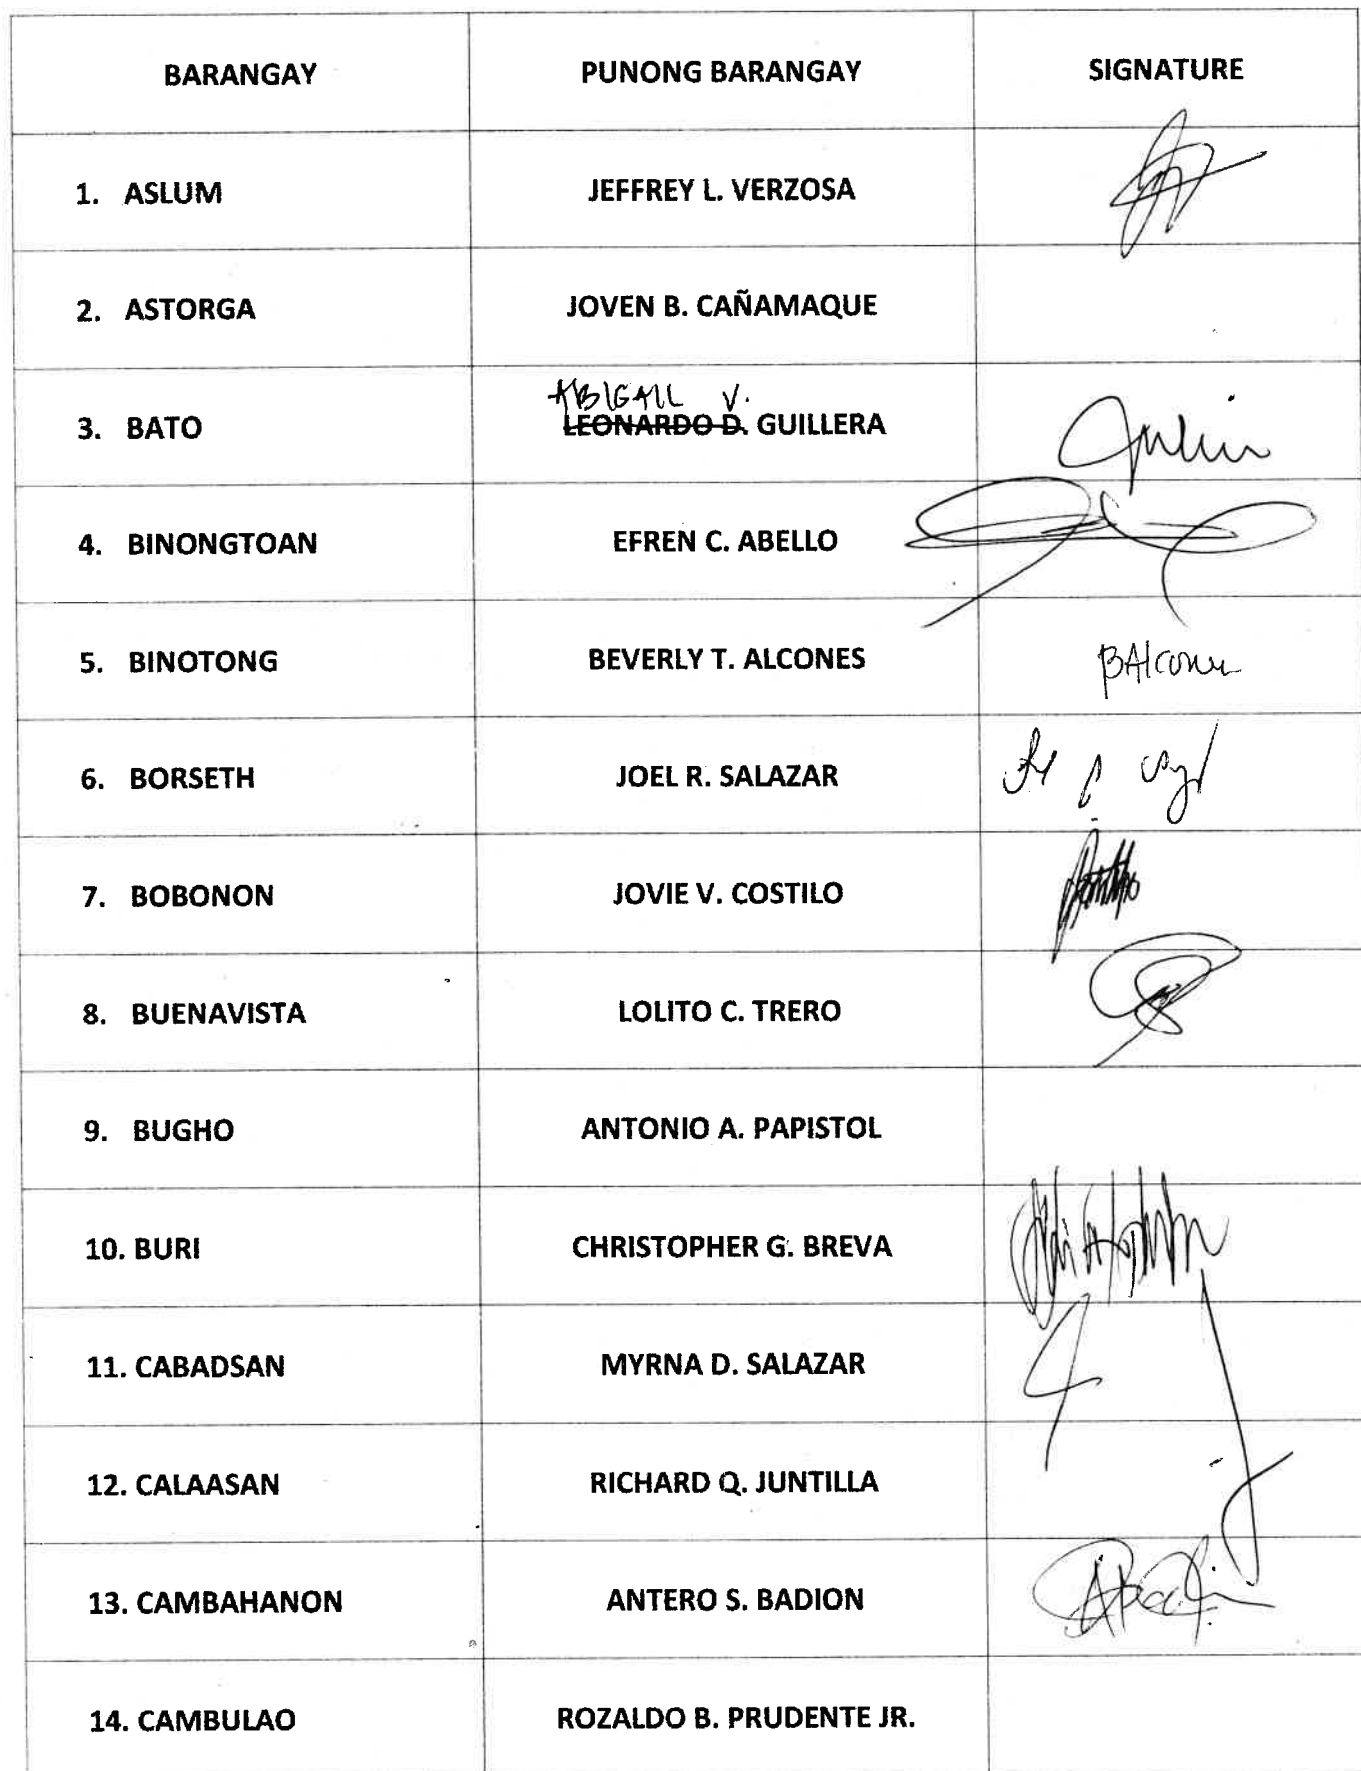 BARANGAY PUNONG BARANGAY SIGNATURE
1. ASLUM JEFFREY L. VERZOSA
2. ASTORGA JOVEN B. CAÑAMAQUE
ABIGAIL V.
3. BATO LEONARDO D. GUILLERA
4. BINONGTOAN EFREN C. ABELLO
5. BINOTONG BEVERLY T. ALCONES BAlcones
6. BORSETH JOEL R. SALAZAR
7. BOBONON JOVIE V. COSTILO
8. BUENAVISTA LOLITO C. TRERO
9. BUGHO ANTONIO A. PAPISTOL
10. BURI CHRISTOPHER G. BREVA
11. CABADSAN MYRNA D. SALAZAR
12. CALAASAN RICHARD Q. JUNTILLA
13. CAMBAHANON ANTERO S. BADION
14. CAMBULAO ROZALDO B. PRUDENTE JR.